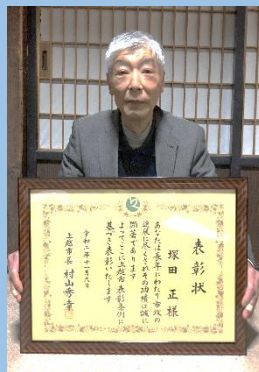 表彰状
塚田 正 様
あなたは長年にわたり市政の
進展に尽くされその功績は誠に
顕著であります
よってここに上越市表彰条例に
基づき表彰いたします
令和二年十一月六日
上越市長 村山秀幸